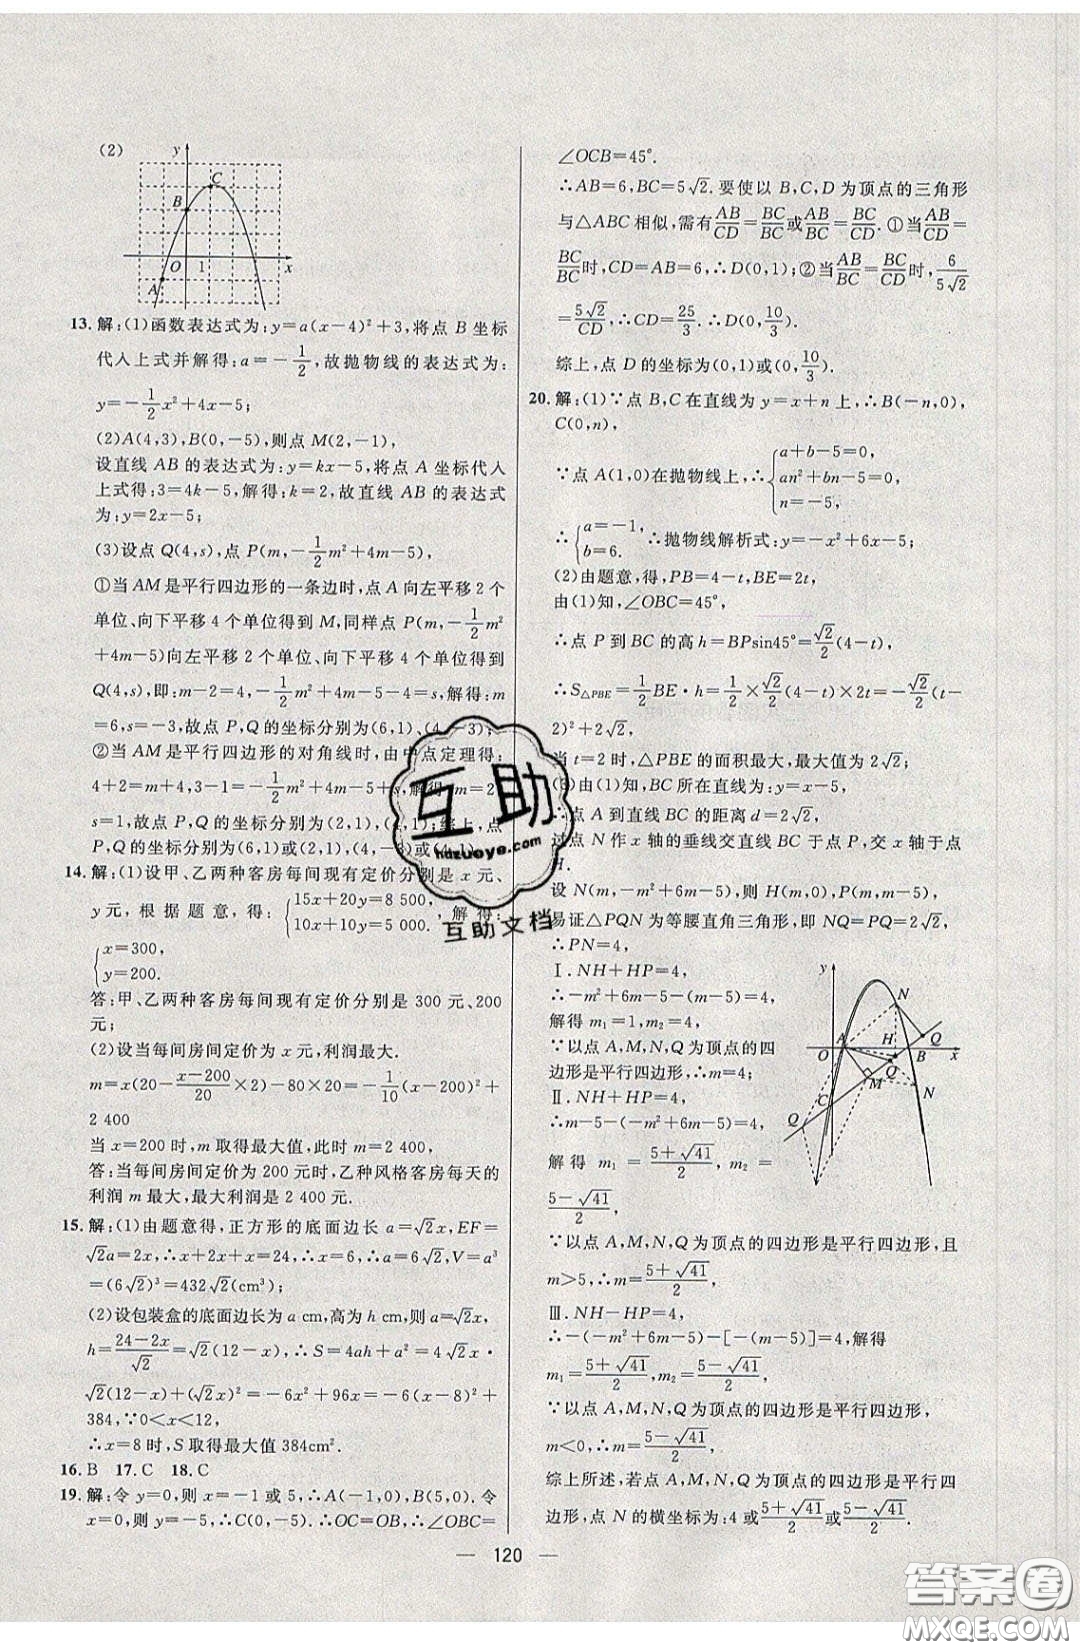 (2)
y
C
B
O 1 x
A
13. 解:(1)函数表达式为:y=a(x-4)²+3,将点 B 坐标
代入上式并解得:a=-1/2,故抛物线的表达式为:
y=-1/2x²+4x-5;
(2)A(4,3),B(0,-5),则点 M(2,-1),
设直线 AB 的表达式为:y=kx-5,将点 A 坐标代人
上式得:3=4k-5,解得:k=2,故直线 AB 的表达式
为:y=2x-5;
(3)设点 Q(4,s),点 P(m,-1/2m²+4m-5),
①当 AM 是平行四边形的一条边时,点 A 向左平移 2 个
单位、向下平移 4 个单位得到 M,同样点 P(m,-1/2m²
+4m-5)向左平移 2 个单位、向下平移 4 个单位得到
Q(4,s),即:m-2=4,-1/2m²+4m-5-4=s,解得:m
=6,s=-3,故点 P,Q 的坐标分别为(6,1),(4,-3);
②当 AM 是平行四边形的对角线时,由中点定理得:
4+2=m+4,3-1=-1/2m²+4m-5+s,解得:m=2,
s=1,故点 P,Q 的坐标分别为(2,1),(4,1);综上,点
P,Q 的坐标分别为(6,1)或(2,1),(4,-3)或(4,1).
14. 解:(1)设甲、乙两种客房每间现有定价分别是 x 元、
y 元,根据题意,得:{15x+20y=8 500, 10x+10y=5 000.解得:
{x=300, y=200.
答:甲、乙两种客房每间现有定价分别是 300 元、200
元;
(2)设当每间房间定价为 x 元,利润最大.
m=x(20-(x-200)/20×2)-80×20=-1/10(x-200)²+
2 400
当 x=200 时,m 取得最大值,此时 m=2 400,
答:当每间房间定价为 200 元时,乙种风格客房每天的
利润 m 最大,最大利润是 2 400 元.
15. 解:(1)由题意得,正方形的底面边长 a=√2x,EF=
√2a=2x,∴x+2x+x=24,∴x=6,∴a=6√2,V=a³
=(6√2)³=432√2(cm³);
(2)设包装盒的底面边长为 a cm,高为 h cm,则 a=√2x,
h=(24-2x)/√2=√2(12-x),∴S=4ah+a²=4√2x·
√2(12-x)+(√2x)²=-6x²+96x=-6(x-8)²+
384,∵0<x<12,
∴x=8 时,S 取得最大值 384cm².
16. B 17. C 18. C
19. 解:令 y=0,则 x=-1 或 5,∴A(-1,0),B(5,0).令
x=0,则 y=-5,∴C(0,-5),∴OC=OB,∴∠OBC=
∠OCB=45°.
∴AB=6,BC=5√2.要使以 B,C,D 为顶点的三角形
与△ABC 相似,需有AB/CD=BC/BC或AB/BC=BC/CD.①当AB/CD=
BC/BC时,CD=AB=6,∴D(0,1);②当AB/BC=BC/CD时,6/(5√2)
=5√2/CD,∴CD=25/3.∴D(0,10/3).
综上,点 D 的坐标为(0,1)或(0,10/3).
20. 解:(1)∵点 B,C 在直线为 y=x+n 上,∴B(-n,0),
C(0,n),
∵点 A(1,0)在抛物线上,∴{a+b-5=0, an²+bn-5=0, n=-5,
∴{a=-1, b=6.∴抛物线解析式:y=-x²+6x-5;
(2)由题意,得,PB=4-t,BE=2t,
由(1)知,∠OBC=45°,
∴点 P 到 BC 的高 h=BPsin45°=√2/2(4-t),
∴S△PBE=1/2BE·h=1/2×√2/2(4-t)×2t=-√2/2(t-
2)²+2√2,
当 t=2 时,△PBE 的面积最大,最大值为 2√2,
(3)由(1)知,BC 所在直线为:y=x-5,
∴点 A 到直线 BC 的距离 d=2√2,
过点 N 作 x 轴的垂线交直线 BC 于点 P,交 x 轴于点
H.
设 N(m,-m²+6m-5),则 H(m,0),P(m,m-5),
易证△PQN 为等腰直角三角形,即 NQ=PQ=2√2,
∴PN=4,
Ⅰ.NH+HP=4,
∴-m²+6m-5-(m-5)=4,
解得 m₁=1,m₂=4,
∵以点 A,M,N,Q 为顶点的四
边形是平行四边形,∴m=4;
Ⅱ.NH+HP=4,
∴m-5-(-m²+6m-5)=4,
解得 m₁=(5+√41)/2,m₂=
(5-√41)/2,
y
N
A H Q
O B x
Q
M N
C
Q
∵以点 A,M,N,Q 为顶点的四边形是平行四边形,且
m>5,∴m=(5+√41)/2,
Ⅲ.NH-HP=4,
∴-(-m²+6m-5)-[-(m-5)]=4,解得
m₁=(5+√41)/2,m₂=(5-√41)/2,
∵以点 A,M,N,Q 为顶点的四边形是平行四边形,
m<0,∴m=(5-√41)/2,
综上所述,若点 A,M,N,Q 为顶点的四边形是平行四
边形,点 N 的横坐标为:4 或(5+√41)/2或(5-√41)/2.
— 120 —
互助
hdzuoye.com
互助文档
答案圈
MXQE.COM